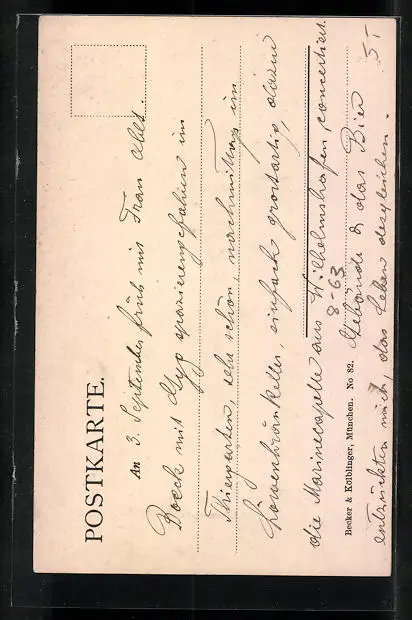 POSTKARTE.
An 3. September früh mit Frau Abel.
Boeck mit Gyp spazierengefahren im
Thiergarten, sehr schön, nachmittag im
Löwenbräukeller, einfach grossartig, darin
die Marinecapelle aus Wilhelmshafen concertiert.
8-63
& das Bier
entzückten mich, das Leben desgleichen.
5T
Becker & Kölblinger, München. No 82.